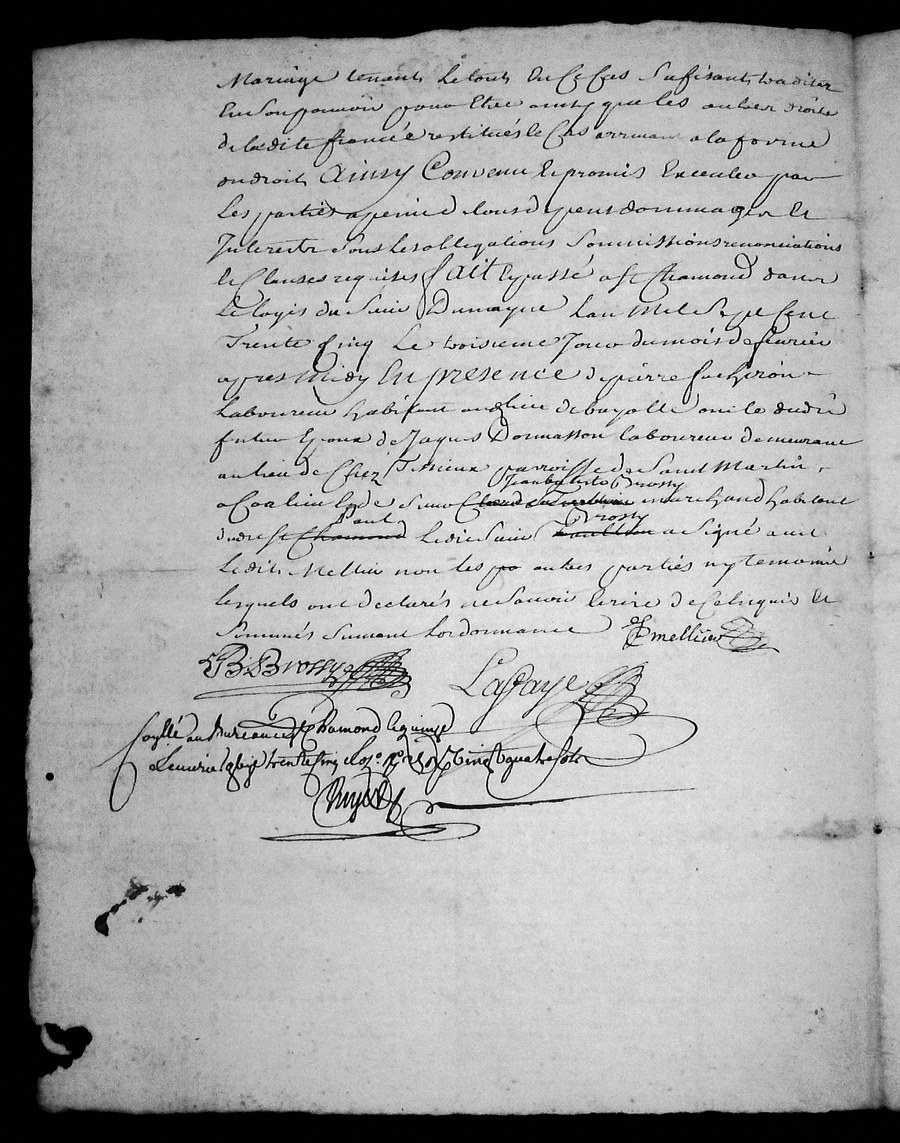 Mariage tenant le tout
En son pouvoir pour Etre ainsy que les autres droits
de ladite francée restitués le Cas arrivant a la forme
du droit Ainsy Convenu Et promis Executer par
Les parties a peine de tous depens dommages Et
Interests Sous les obligations Soumissions renonciations
Et Clauses requises fait Et passé a St Chamond dans
Le logis du Sieur Dumayne Lan Mil Sept Cent
Trente Cinq Le troisieme Jour du mois de fevrier
apres Midy En presence de pierre
Laboureur habitant au lieu de oncle dudit
futur Epoux de Jaques Donnasson laboureur demeurant
au lieu de Chez parroisse de Saint Martin
Jean baptiste Brossy
a Coalieu Et de Sieur marchand habitant
Paul Brossy
dudit St Chamond Ledit Sieur a Signé avec
Ledit Mellier non les autres parties ny temoins
lesquels ont declarés ne Savoir Ecrire de Ce Enquis Et
Sommés Suivant Lordonnance Mellier
JB Brossy
Lafaye
au Bureau de St Chamond le quinze
fevrier trente Cinq vingt quatre sols